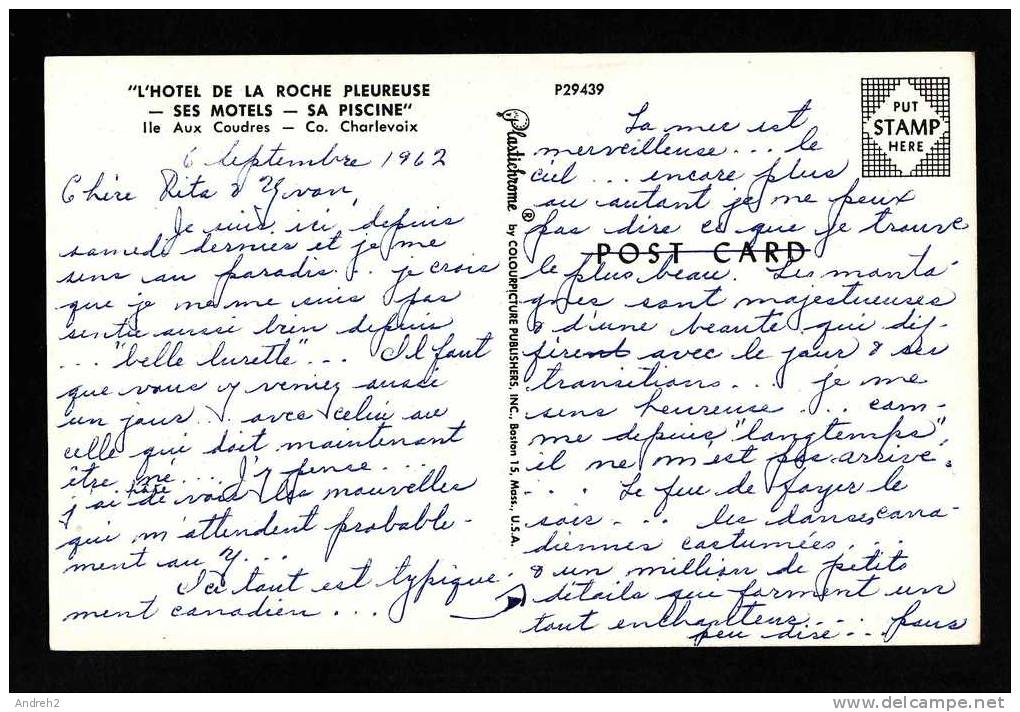 "L'HOTEL DE LA ROCHE PLEUREUSE
— SES MOTELS — SA PISCINE"
Ile Aux Coudres — Co. Charlevoix
6 Septembre 1962
Chère Rita & Yvon,
Je suis ici depuis
samedi dernier et je me
sens au paradis... je crois
que je ne me suis pas
sentie aussi bien depuis
... "belle lurette"... Il faut
que vous y veniez aussi
un jour... avec celui ou
celle qui doit maintenant
être né... J'y pense...
j'ai hâte de voir les nouvelles
qui m'attendent probable-
ment au Y...
Ici tout est typique-
ment canadien...
P29439
PUT
STAMP
HERE
Plastichrome ® by COLOURPICTURE PUBLISHERS, INC., Boston 15, Mass., U.S.A.
POST CARD
La mer est
merveilleuse... le
ciel... encore plus
ou autant je ne peux
pas dire ce que je trouve
le plus beau. Les monta-
gnes sont majestueuses
& d'une beauté qui dif-
fèrent avec le jour & ses
transitions... je me
sens heureuse... com-
me depuis "longtemps",
il ne m'est pas arrivé.
.... Le feu de foyer le
soir.... les danses cana-
diennes costumées...
& un million de petits
détails que forment un
tout enchanteur....
peu dire... pour
Andreh2
www.delcampe.net